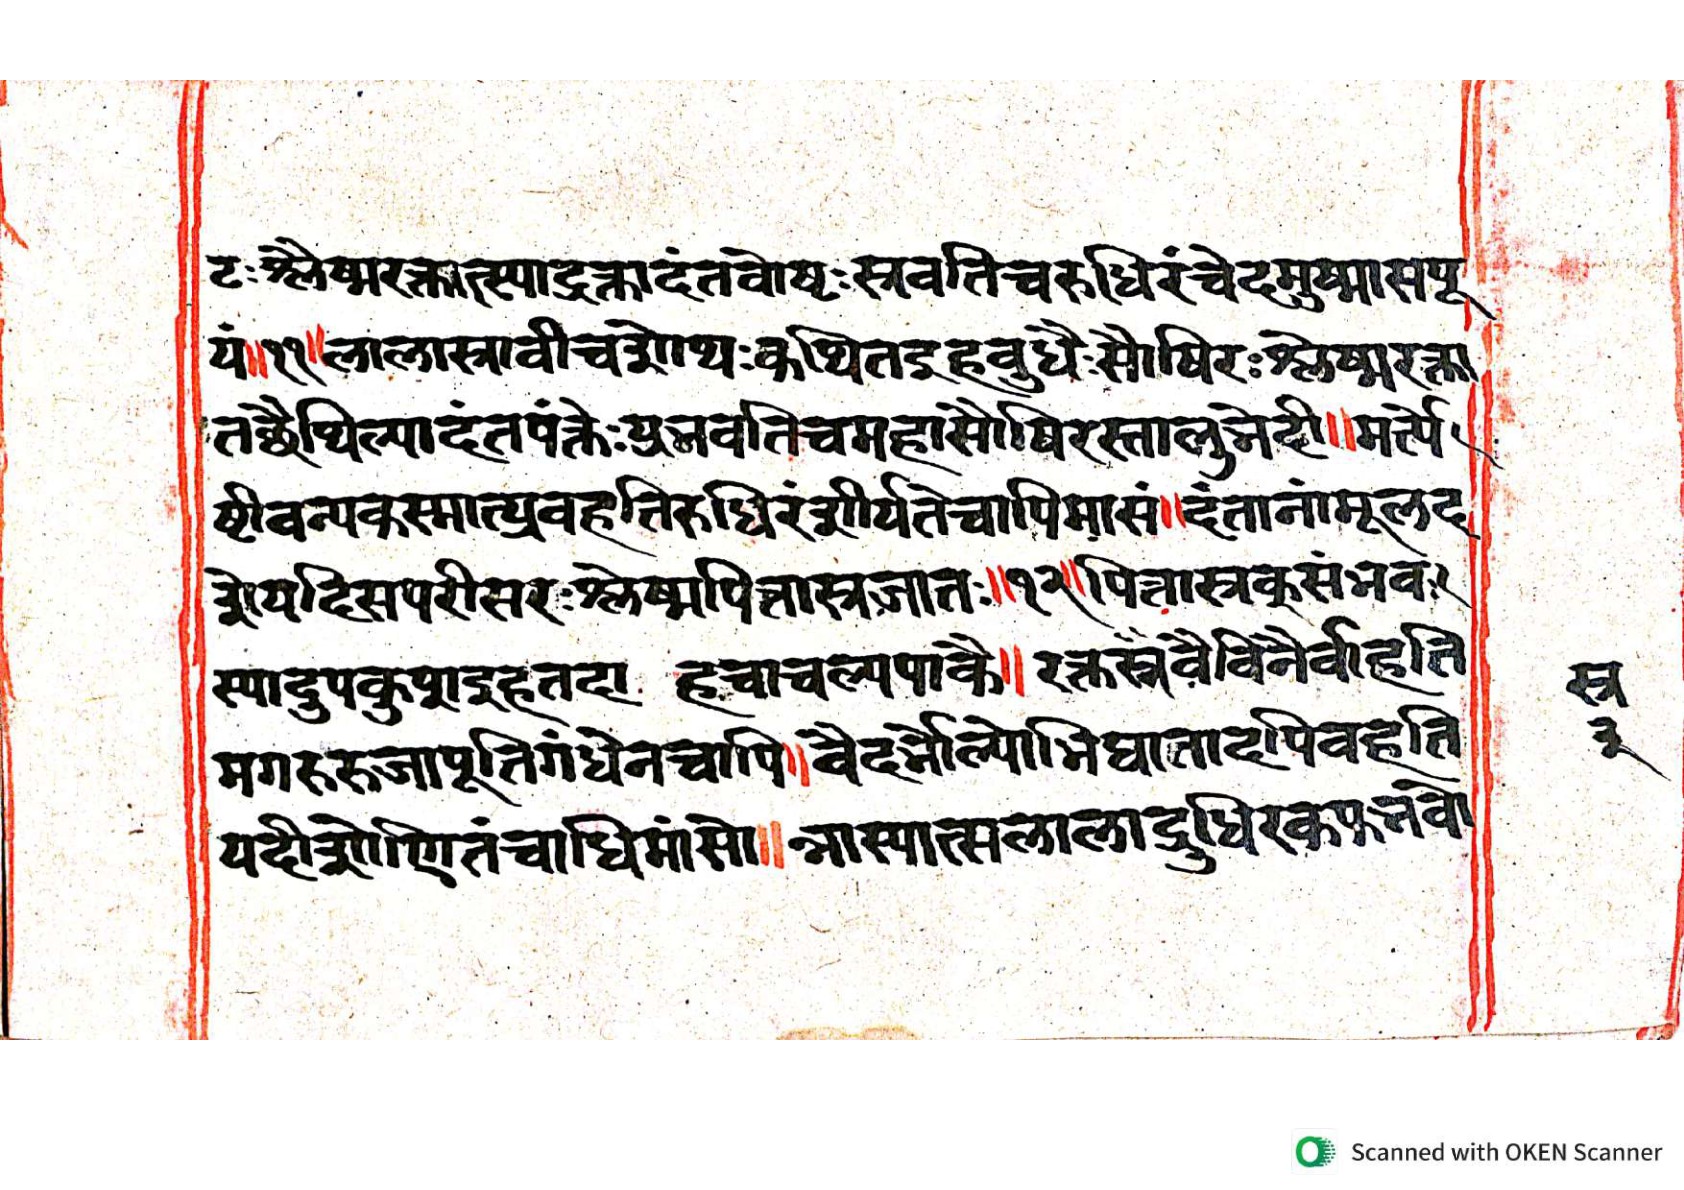 टः श्लैष्मरक्तात्स्याद्रक्तादंतवेष्टः स्त्रवतिचरुधिरंचेदमुष्मासपू
यं॥११॥लालास्त्रावीचशोथः कथितइहबुधैः सौषिरः श्लेष्मरक्ता
तछैथिल्यादंतपंक्तेः प्रभवतिचमहासौषिरस्तालुभेदी॥मर्त्ये
ष्टीवन्यकस्मात्प्रवहतिरुधिरंशीर्यतेचापिमासं॥दंतानांमूलद
शेयदिसपरीसरः श्लेष्मपित्तास्त्रजातः॥१२॥पित्तास्त्रकसंभवः
स्यादुपकुशइहतदा हचाचल्यपाकै॥रक्तस्त्रवैविनैर्वाहति
भगरुरुजापूतिगंधेनचापि॥वैदर्भोल्पोभिघातादपिवहति
यदीशोणितंचाधिमांसो॥न्नास्यात्सलालाद्रुधिरकफभवो
स्त्र
३